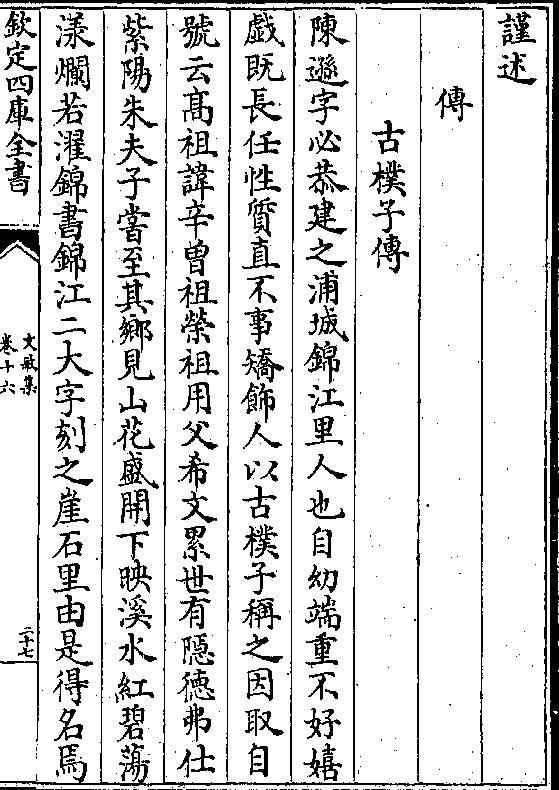 謹述
傳
古樸子傳
陳遜字必恭建之浦城錦江里人也自幼端重不好嬉
戲既長任性質直不事矯飾人以古樸子稱之因取自
號云高祖諱辛曾祖榮祖用父希文累世有隱德弗仕
紫陽朱夫子嘗至其鄉見山花盛開下映溪水紅碧蕩
漾爛若濯錦書錦江二大字刻之崖石里由是得名焉
欽定四庫全書
文敏集
卷十六
二十七